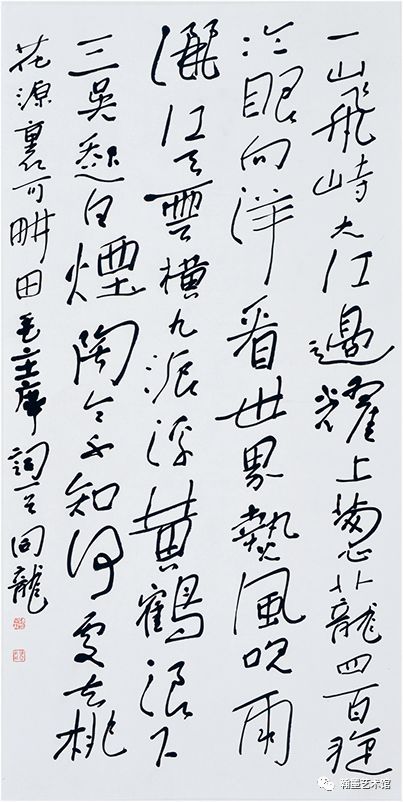 一山飛峙大江邊耀上葱蘢四百旋
冷眼向洋看世界熱風吹雨
灑江天雲橫九派浮黄鶴浪下
三吳起白煙陶令不知何處去桃
花源裏可畊田毛主席詞一首回龍
翰墨艺术馆